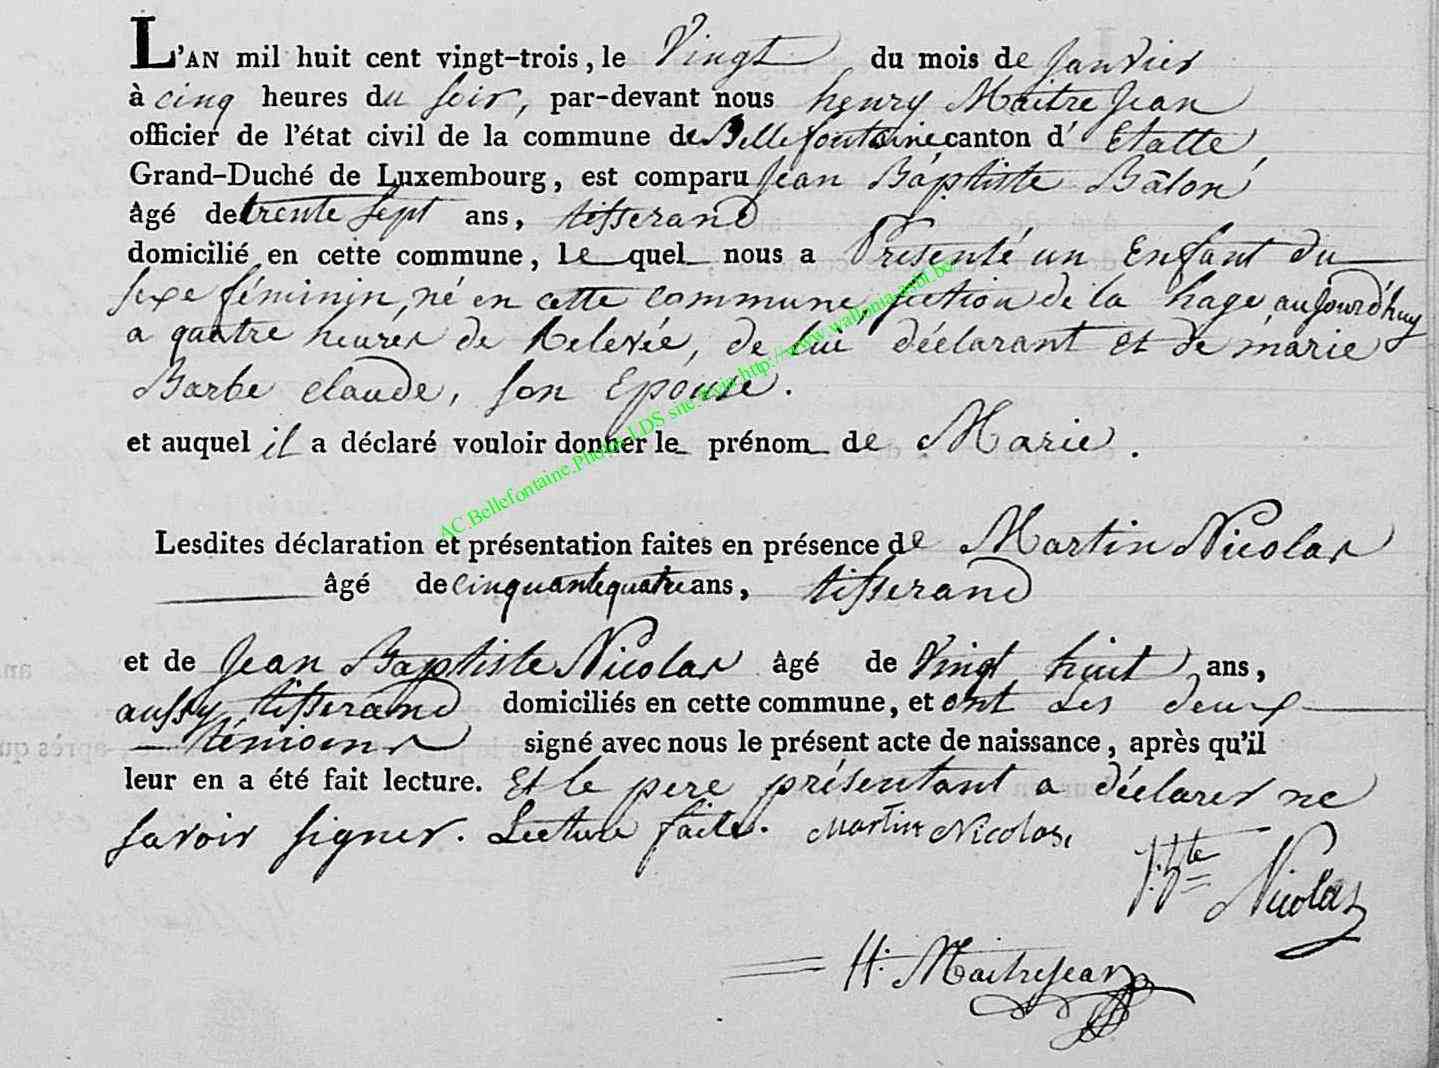 L'AN mil huit cent vingt-trois, le Vingt du mois de Janvier
à cinq heures du soir, par-devant nous henry Maitre Jean
officier de l'état civil de la commune de Bellefontaine canton d' Etatte,
Grand-Duché de Luxembourg, est comparu Jean Baptiste Bâlon,
âgé de trente sept ans, tisserand
domicilié en cette commune, le quel nous a Présenté un Enfant du
sexe féminin, né en cette commune, section de la hage, aujourd'huy
a quatre heures de Relevée, de lui déclarant et de marie
Barbe claude, son Epouse.
et auquel il a déclaré vouloir donner le prénom de Marie.
Lesdites déclaration et présentation faites en présence de Martin Nicolas
âgé de cinquante quatre ans, tisserand
et de Jean Baptiste Nicolas âgé de Vingt huit ans,
aussy tisserand domiciliés en cette commune, et ont Les deux
témoins signé avec nous le présent acte de naissance, après qu'il
leur en a été fait lecture. Et le pere présentant a déclarer ne
savoir signer. Lecture faite. Martin Nicolas,
J: Bte Nicolas
H: Maitrejean
AC.Bellefontaine.Photos LDS sncb http://www.wallonia.asbl.be